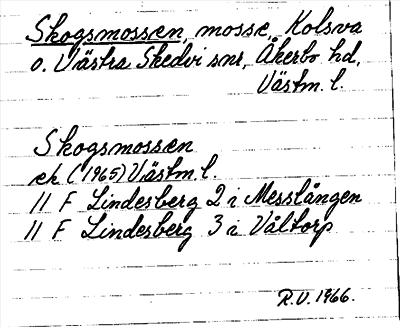 Skogsmossen, mosse, Kolsva
o. Västra Skedvi snr, Åkerbo hd,
Västm. l.
Skogsmossen
ek (1965) Västm l.
11 F Lindesberg 2 i Messlången
11 F Lindesberg 3 i Våltorp
R.V. 1966.